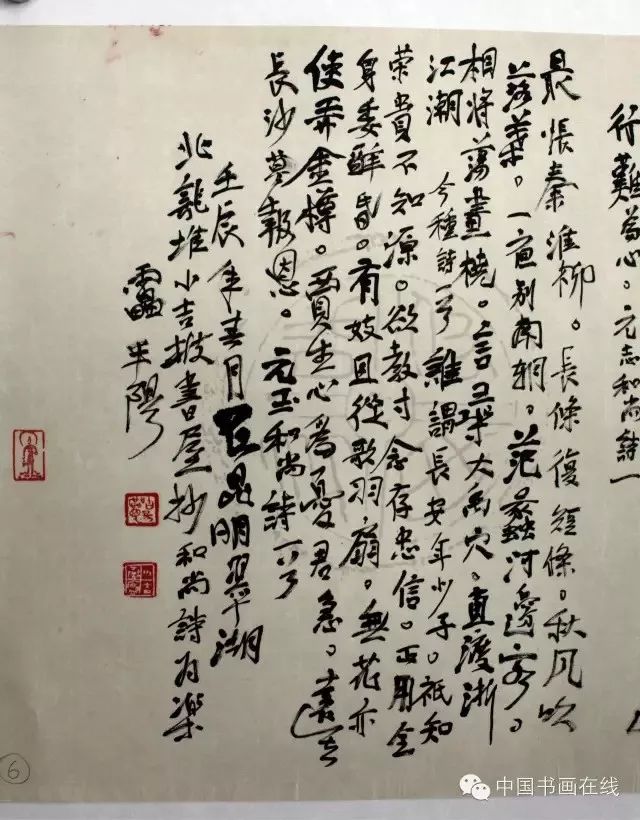 行難為心。元志和尚詩一
最悵秦淮柳。長條復短條。秋風吹
落葉。一夜別南朝。范蠡河邊客。
相將蕩畫橈。言尋大禹穴。直渡浙
江潮 今種詩一首 誰謂長安年少子。祇知
榮貴不知源。欲教寸念存忠信。不用全
身委醉昏。有妓且從歌羽扇。無花亦
使弄金樽。賈生心為憂君急。遠去
長沙莫報恩。元玉和尚詩一首
壬辰年春月於昆明翠湖
北龍堆小吉坡書屋抄和尚詩為樂
靁半陽
6
中国书画在线